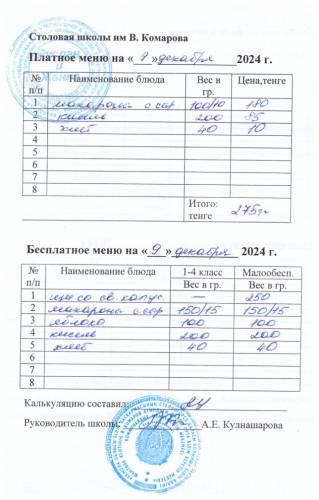 Столовая школы им В. Комарова
Платное меню на « 9 » декабря 2024 г.
№ п/п Наименование блюда Вес в гр. Цена,тенге
1 макароны с сыр 100/10 180
2 кисель 200 85
3 хлеб 40 10
4
5
6
7
8
Итого: тенге 275тг
Бесплатное меню на « 9 » декабря 2024 г.
№ п/п Наименование блюда 1-4 класс Малообесп.
Вес в гр. Вес в гр.
1 щи со св. капус. — 250
2 макароны с сыр 150/15 150/15
3 яблоко 100 100
4 кисель 200 200
5 хлеб 40 40
6
7
8
Калькуляцию составил:
Руководитель школы: А.Е. Кулнашарова